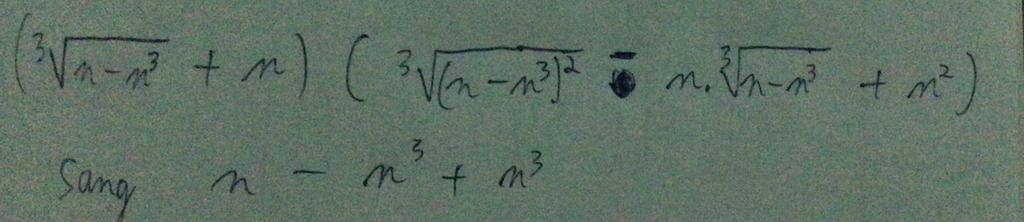 (³√(n-n³) + n) (³√((n-n³)²) - n.³√(n-n³) + n²)
Sang n - n³ + n³